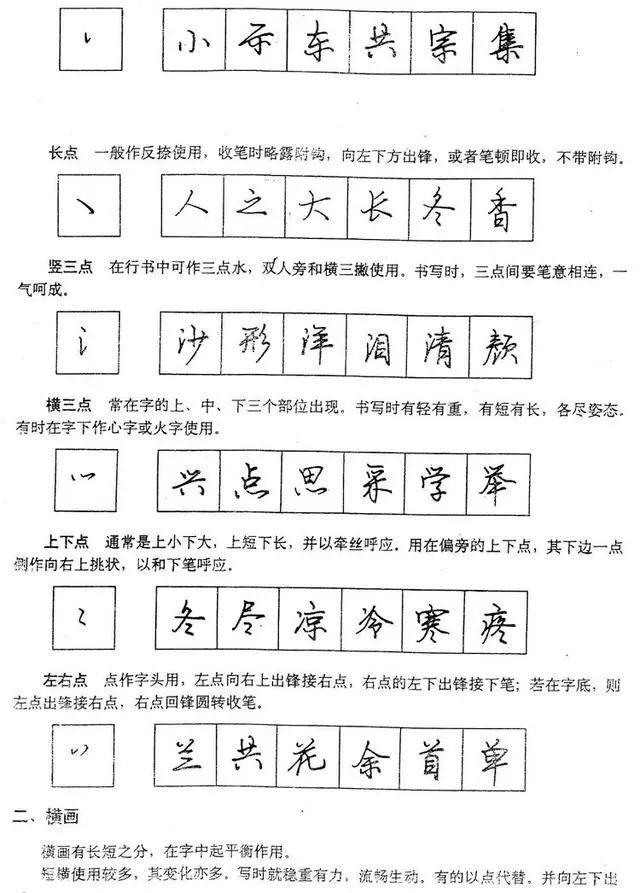 小 示 东 共 宗 集
长点 一般作反捺使用，收笔时略露附钩，向左下方出锋，或者笔顿即收，不带附钩。
人 之 大 长 冬 香
竖三点 在行书中可作三点水，双人旁和横三撇使用。书写时，三点间要笔意相连，一
气呵成。
氵 沙 形 洋 泪 清 颜
横三点 常在字的上、中、下三个部位出现。书写时有轻有重，有短有长，各尽姿态。
有时在字下作心字或火字使用。
兴 点 思 采 学 举
上下点 通常是上小下大，上短下长，并以牵丝呼应。用在偏旁的上下点，其下边一点
侧作向右上挑状，以和下笔呼应。
冬 尽 凉 冷 寒 疼
左右点 点作字头用，左点向右上出锋接右点，右点的左下出锋接下笔；若在字底，则
左点出锋接右点，右点回锋圆转收笔。
兰 共 花 余 首 单
二、横画
横画有长短之分，在字中起平衡作用。
短横使用较多，其变化亦多。写时就稳重有力，流畅生动。有的以点代替，并向左下出